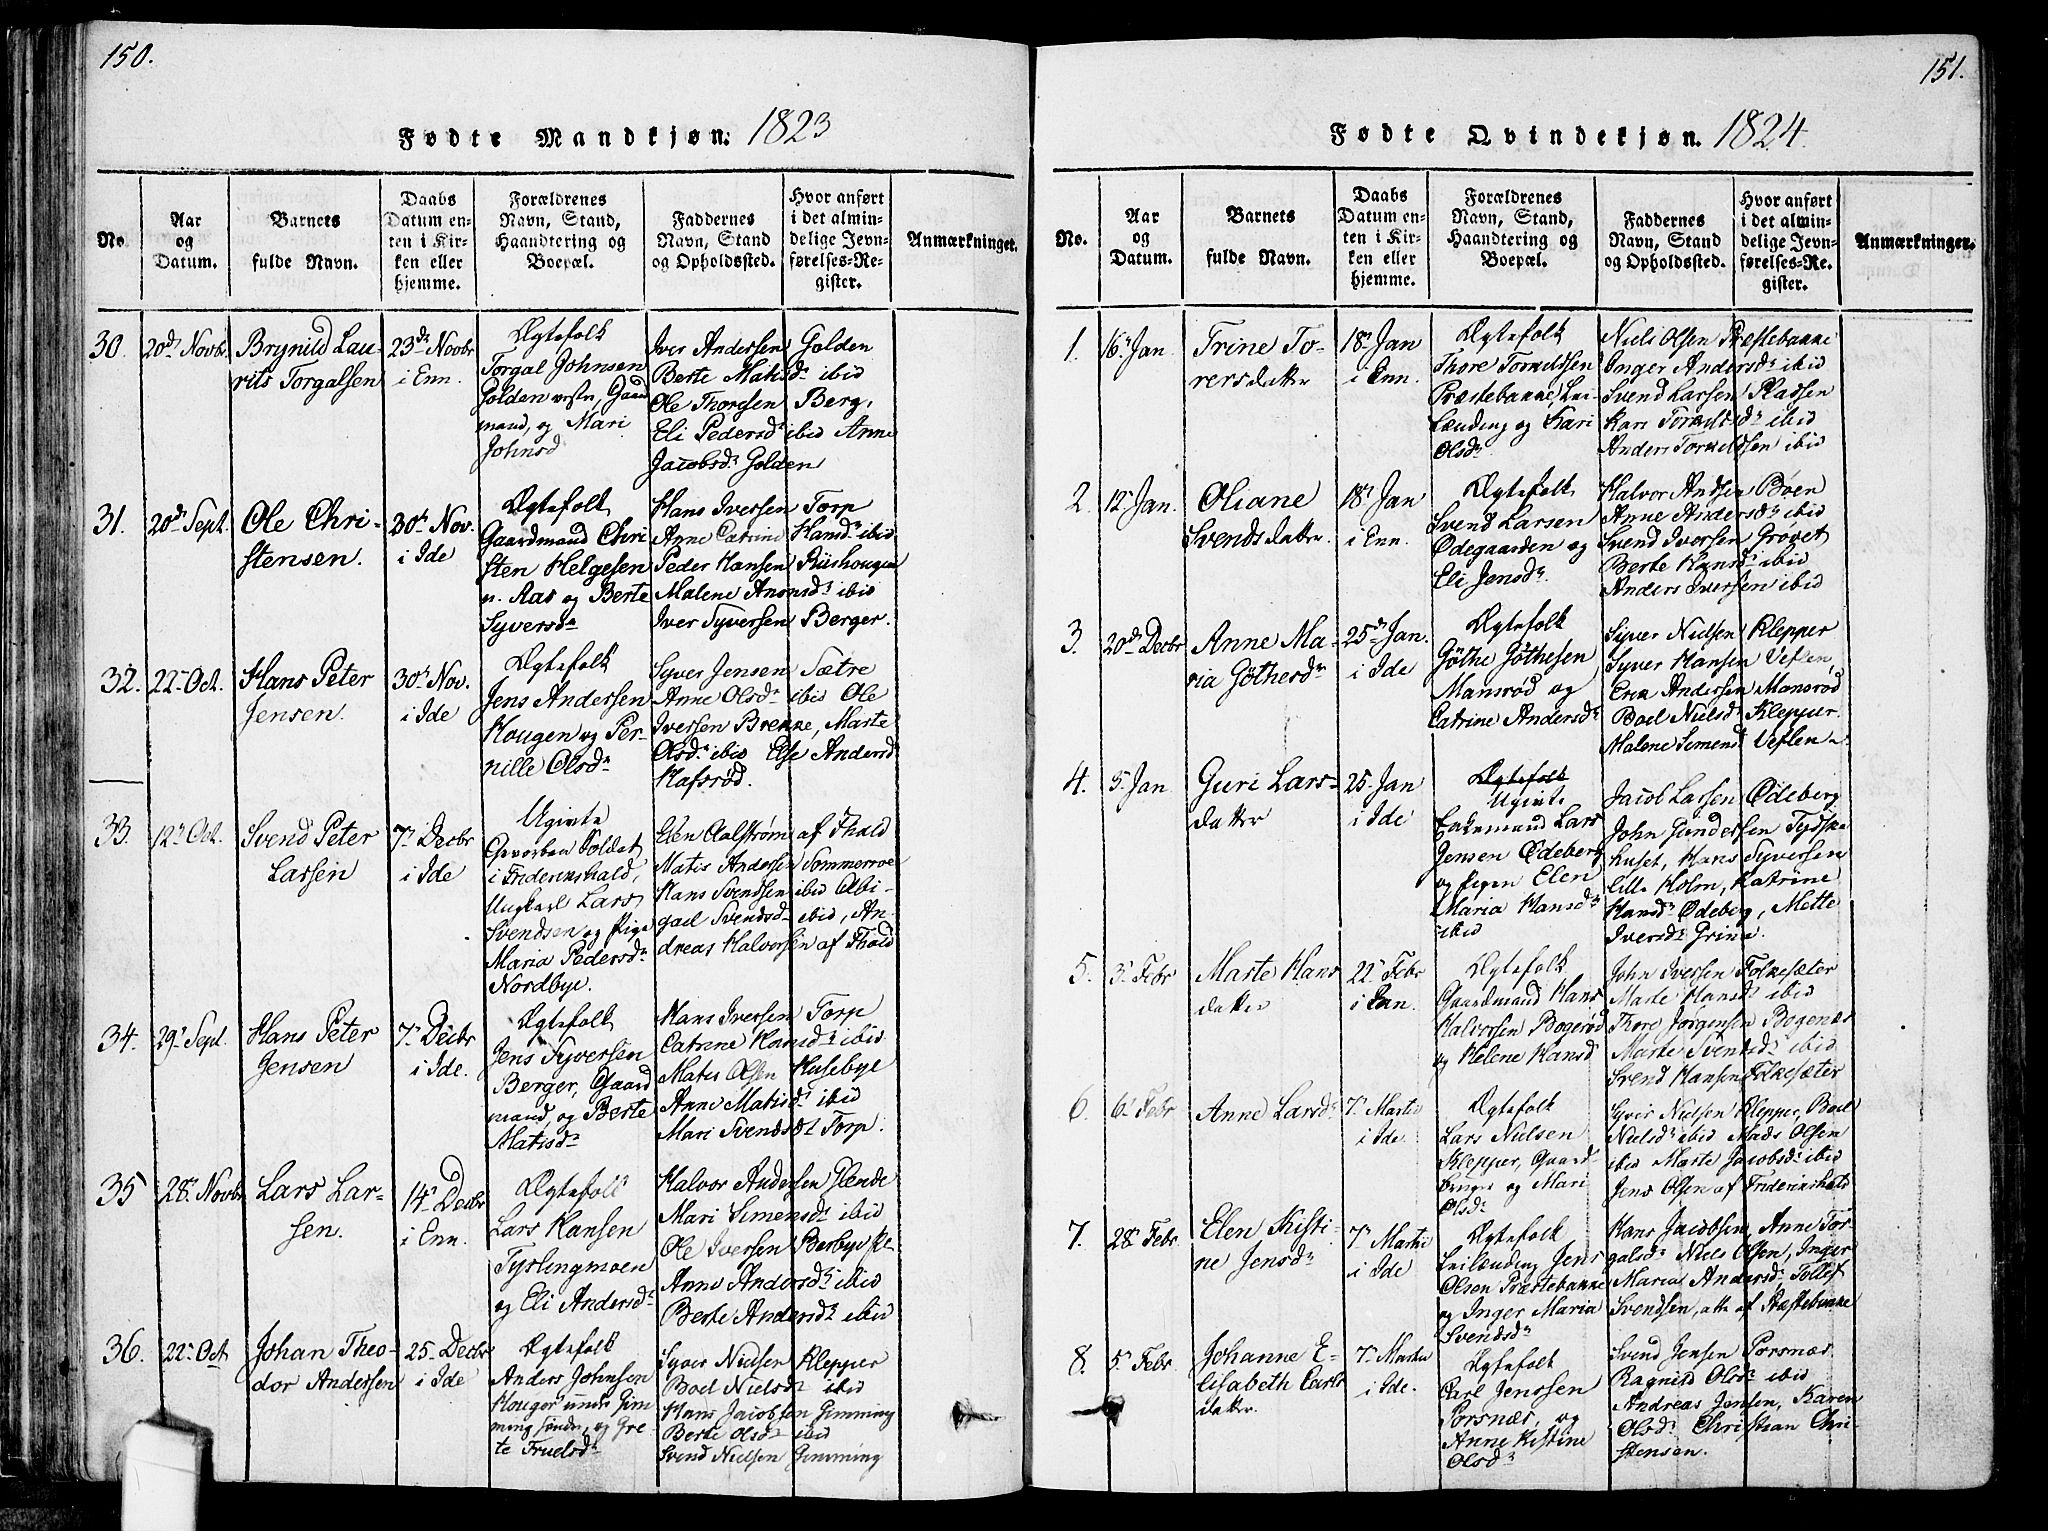 150.
Fødte Mandkjøn: 1823
No.
Aar
og
Datum.
Barnets
fulde Navn.
Daabs
Datum en-
ten i Kir-
ken eller
hjemme.
Forældrenes
Navn, Stand,
Haandtering og
Boepæl.
Faddernes
Navn, Stand
og Opholdssted.
Hvor anført
i det almin-
delige Jevn-
førelses-Re-
gister.
Anmærkninger.
30.
20d. Novbr.
Brynild Lau-
rits Torgalsen
23d. Novbr
i Enn.
Ægtefolk
Torgal Johnsen
Golden vestre, Gaard
mand, og Mari
Johnsd
Iver Andersen Golden
Berte Matisdr ibid
Ole Thoresen Berg,
Eli Pedersdr ibid Anne
Jacobsdr Golden
31.
20d. Sept.
Ole Chri-
stensen.
30t Nov.
i Ide
Ægtefolk
Gaardmand Chri
sten Helgesen
n. Aas og Berte
Syversdr
Hans Iversen Torp
Anne Catrine Hansdr ibid
Peder Hansen Riishougen
Malene Amunsdr ibid
Iver Syversen Berger.
32.
22 Oct.
Hans Peter
Jensen.
30t Nov.
i Ide
Ægtefolk
Jens Andersen
Hougen og Per-
nille Olsdr
Syver Jensen Sætre
Anne Olsdr ibid Ole
Iversen Brekke, Marte
Olsdr ibid Else Andersd
Hafsrød.
33.
12t Oct.
Svend Peter
Larsen
7t Decbr
i Ide
Ugivte
Gevorben Soldat
i Fridrikshald,
Ungkarl Lars
Svendsen og Pige
Maria Pedersdr
Nordbye.
Eden Aalstrøm af Fhald
Matis Andersen Sommerroe
Hans Svendsen ibid Abi-
gael Svendsdr ibid, An-
dreas Halvorsen af Fhald
34.
29t Sept.
Hans Peter
Jensen
7t Decbr
i Ide.
Ægtefolk
Jens Syversen
Berger, Gaard
mand, og Berte
Matisdr
Hans Iversen Torp
Catrine Hansdr ibid
Matis Olsen Husebye
Anne Matisdr ibid
Mari Svendsdr Torp.
35
28t Novbr
Lars Lar-
sen.
14t Decbr
i Enn.
Ægtefolk
Lars Hansen
Tyslingmoen
og Eli Andersdr
Halvor Andersen Glende
Mari Simensdr ibid
Ole Iversen Berbye
Anne Andersdr ibid
Berte Andersdr ibid
36.
22 Oct
Johan Theo-
dor Andersen
25 Decbr
i Ide
Ægtefolk
Anders Johnsen
Hougen under Gim
ming søndre, og Gre-
te Truelsdr
Syver Nielsen Klepper
Boel Nielsdr ibid
Hans Jacobsen Gimming
Berte Olsdr ibid
Svend Nielsen Gimming
151.
Fødte Qvindekjøn. 1824.
No.
Aar
og
Datum.
Barnets
fulde Navn.
Daabs
Datum en-
ten i Kir-
ken eller
hjemme.
Forældrenes
Navn, Stand,
Haandtering og
Boepæl.
Faddernes
Navn, Stand
og Opholdssted.
Hvor anført
i det almin-
delige Jevn-
førelses-Re-
gister.
Anmærkninger.
1.
16t Jan
Trine To-
rersdatter
18t Jan
i Enn.
Ægtefolk
Thore Torkildsen
Præstebakke, Lei-
lænding og Kari
Olsdr
Niels Olsen Præstebakke
Inger Andersdr ibid
Svend Larsen Pladsen
Kari Torkildsdr ibid
Anders Torkildsen ibid
2.
12t Jan.
Oliane
Svendsdatter
18t Jan
i Enn.
Ægtefolk
Svend Larsen
Ødegaarden og
Eli Jensdr
Halvor Andsen Bøen
Anne Andersdr ibid
Svend Iversen Grøvet
Berte Hansdr ibid
Anders Iversen ibid
3.
20d. Decbr
Anne Ma-
ria Göthersdr
25d. Jan.
i Ide
Ægtefolk
Göthe Göthesen
Mansrød og
Catrine Andersdr
Syver Nielsen Klepper
Syver Hansen Veflen
Erik Andersen Mansrød
Boel Nielsdr Klepper
Malene Simensd Veflen
4.
5 Jan
Guri Lars-
datter
25 Jan
i Ide
Ægtefolk
Ugivte
Enkemand Lars
Jensen Ødeberg
og Pigen Elen
Maria Hansdr
ibid
Jacob Larsen Ødeberg
John Gundersen Tydske
huset, Hans Syversen
lille Holm, Katrine
Hansdr Ødeberg, Mette
Iversdr Grime.
5.
3t Febr
Marte Hans
datter
22t Febr
i Enn.
Ægtefolk
Gaardmand Hans
Halvorsen Bogerød
og Helene Hansd
John Iversen Folkesæter
Marte Hansdr ibid
Thore Jørgensen Bogenæs
Marte Svensdr ibid
Svend Hansen Folkesæter
6.
6t Febr
Anne Larsdr
7t Martii
i Ide
Ægtefolk
Lars Nielsen
Klepper, Gaard-
bruger og Mari
Olsdr
Syver Nielsen Klepper, Boel
Nielsdr ibid Mads Olsen
ibid Marte Jacobsdr ibid
Jens Olsen af Friderikshald
7.
28t Febr.
Elen Kisti-
ne Jensdr
7t Martii
i Ide
Ægtefolk
Leilænding Jens
Olsen Præstebakke
og Inger Maria
Svendsdr
Hans Jacobsen, Anne Tor-
galsdr Niels Olsen, Inger
Maria Andersdr Tollef
Svendsen, alle af Præstebakke
8.
5t Febr.
Johanne E-
lisabeth Carls
datter.
7t Martii
i Ide.
Ægtefolk
Carl Jenssen
Porsnæs, og
Anne Kistine
Olsdr
Svend Jensen Porsnæs
Ragnild Olsdr ibid
Andreas Jensen, Karen
Olsdr Christian Chri-
stensen.